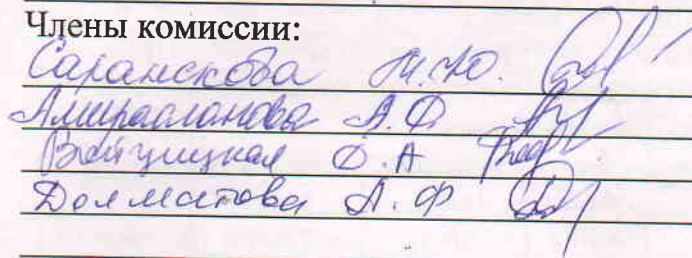 Члены комиссии:
Саранскова Н.Ю.
Амирасланова А.Ф.
Войцицкая О.А
Долматова А.Ф